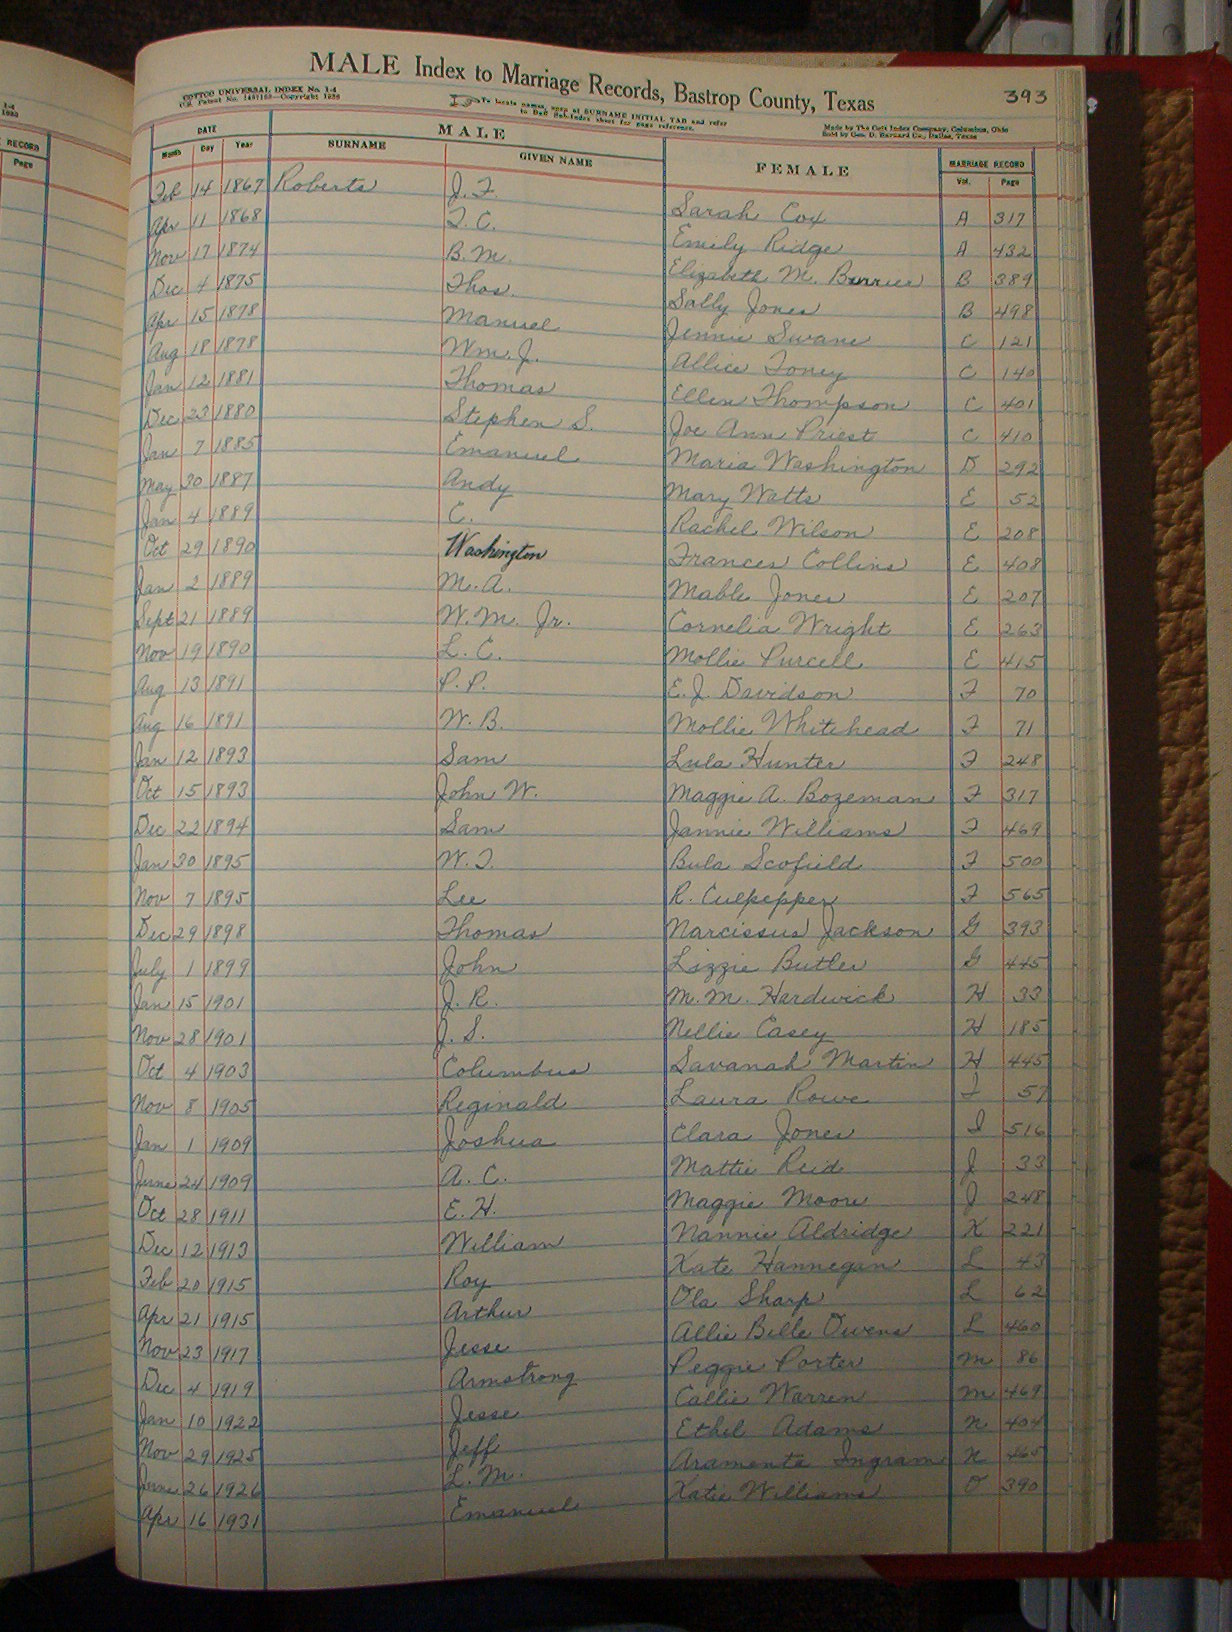 MALE Index to Marriage Records, Bastrop County, Texas 393
COTTCO UNIVERSAL INDEX No. 1-4
To locate names, open at SURNAME INITIAL TAB and refer
to Duff Sub-Index sheet for page reference.
Made by The Cott Index Company, Columbus, Ohio
RECORD
Page
DATE MALE FEMALE MARRIAGE RECORD
Month Day Year SURNAME GIVEN NAME Vol. Page
Feb 14 1867 Roberts J. F. Sarah Cox A 317
Apr 11 1868 T. C. Emily Ridge A 432
Nov 17 1874 B. M. Elizabeth M. Burries B 389
Dec 4 1875 Thos. Sally Jones B 498
Apr 15 1878 Manuel Jennie Swane C 121
Aug 18 1878 Wm. J. Allice Toney C 140
Jan 12 1881 Thomas Ellen Thompson C 401
Dec 23 1880 Stephen S. Joe Ann Priest C 410
Jan 7 1885 Emanuel Maria Washington D 292
May 30 1887 Andy Mary Watts E 52
Jan 4 1889 C. Rachel Wilson E 208
Oct 29 1890 Washington Frances Collins E 408
Jan 2 1889 M. A. Mable Jones E 207
Sept 21 1889 W. M. Jr. Cornelia Wright E 263
Nov 19 1890 L. C. Mollie Purcell E 415
Aug 13 1891 P. P. E. J. Davidson F 70
Aug 16 1891 W. B. Mollie Whitehead F 71
Jan 12 1893 Sam Lula Hunter F 248
Oct 15 1893 John W. Maggie A. Bozeman F 317
Dec 22 1894 Sam Jannie Williams F 469
Jan 30 1895 W. T. Bula Scofield F 500
Nov 7 1895 Lee R. Culpepper F 565
Dec 29 1898 Thomas Narcissus Jackson G 393
July 1 1899 John Lizzie Butler G 445
Jan 15 1901 J. R. M. M. Hardwick H 33
Nov 28 1901 J. S. Nellie Casey H 185
Oct 4 1903 Columbus Savanah Martin H 445
Nov 8 1905 Reginald Laura Rowe I 57
Jan 1 1909 Joshua Clara Jones I 516
June 24 1909 A. C. Mattie Reid J 33
Oct 28 1911 E. H. Maggie Moore J 248
Dec 12 1913 William Nannie Aldridge K 221
Feb 20 1915 Roy Kate Hannegan L 43
Apr 21 1915 Arthur Ola Sharp L 62
Nov 23 1917 Jesse Allie Belle Owens L 460
Dec 4 1919 Armstrong Peggie Porter M 86
Jan 10 1922 Jesse Callie Warren M 469
Nov 29 1925 Jeff Ethel Adams N 404
June 26 1926 L. M. Aramenta Ingram N 465
Apr 16 1931 Emanuel Katie Williams O 390